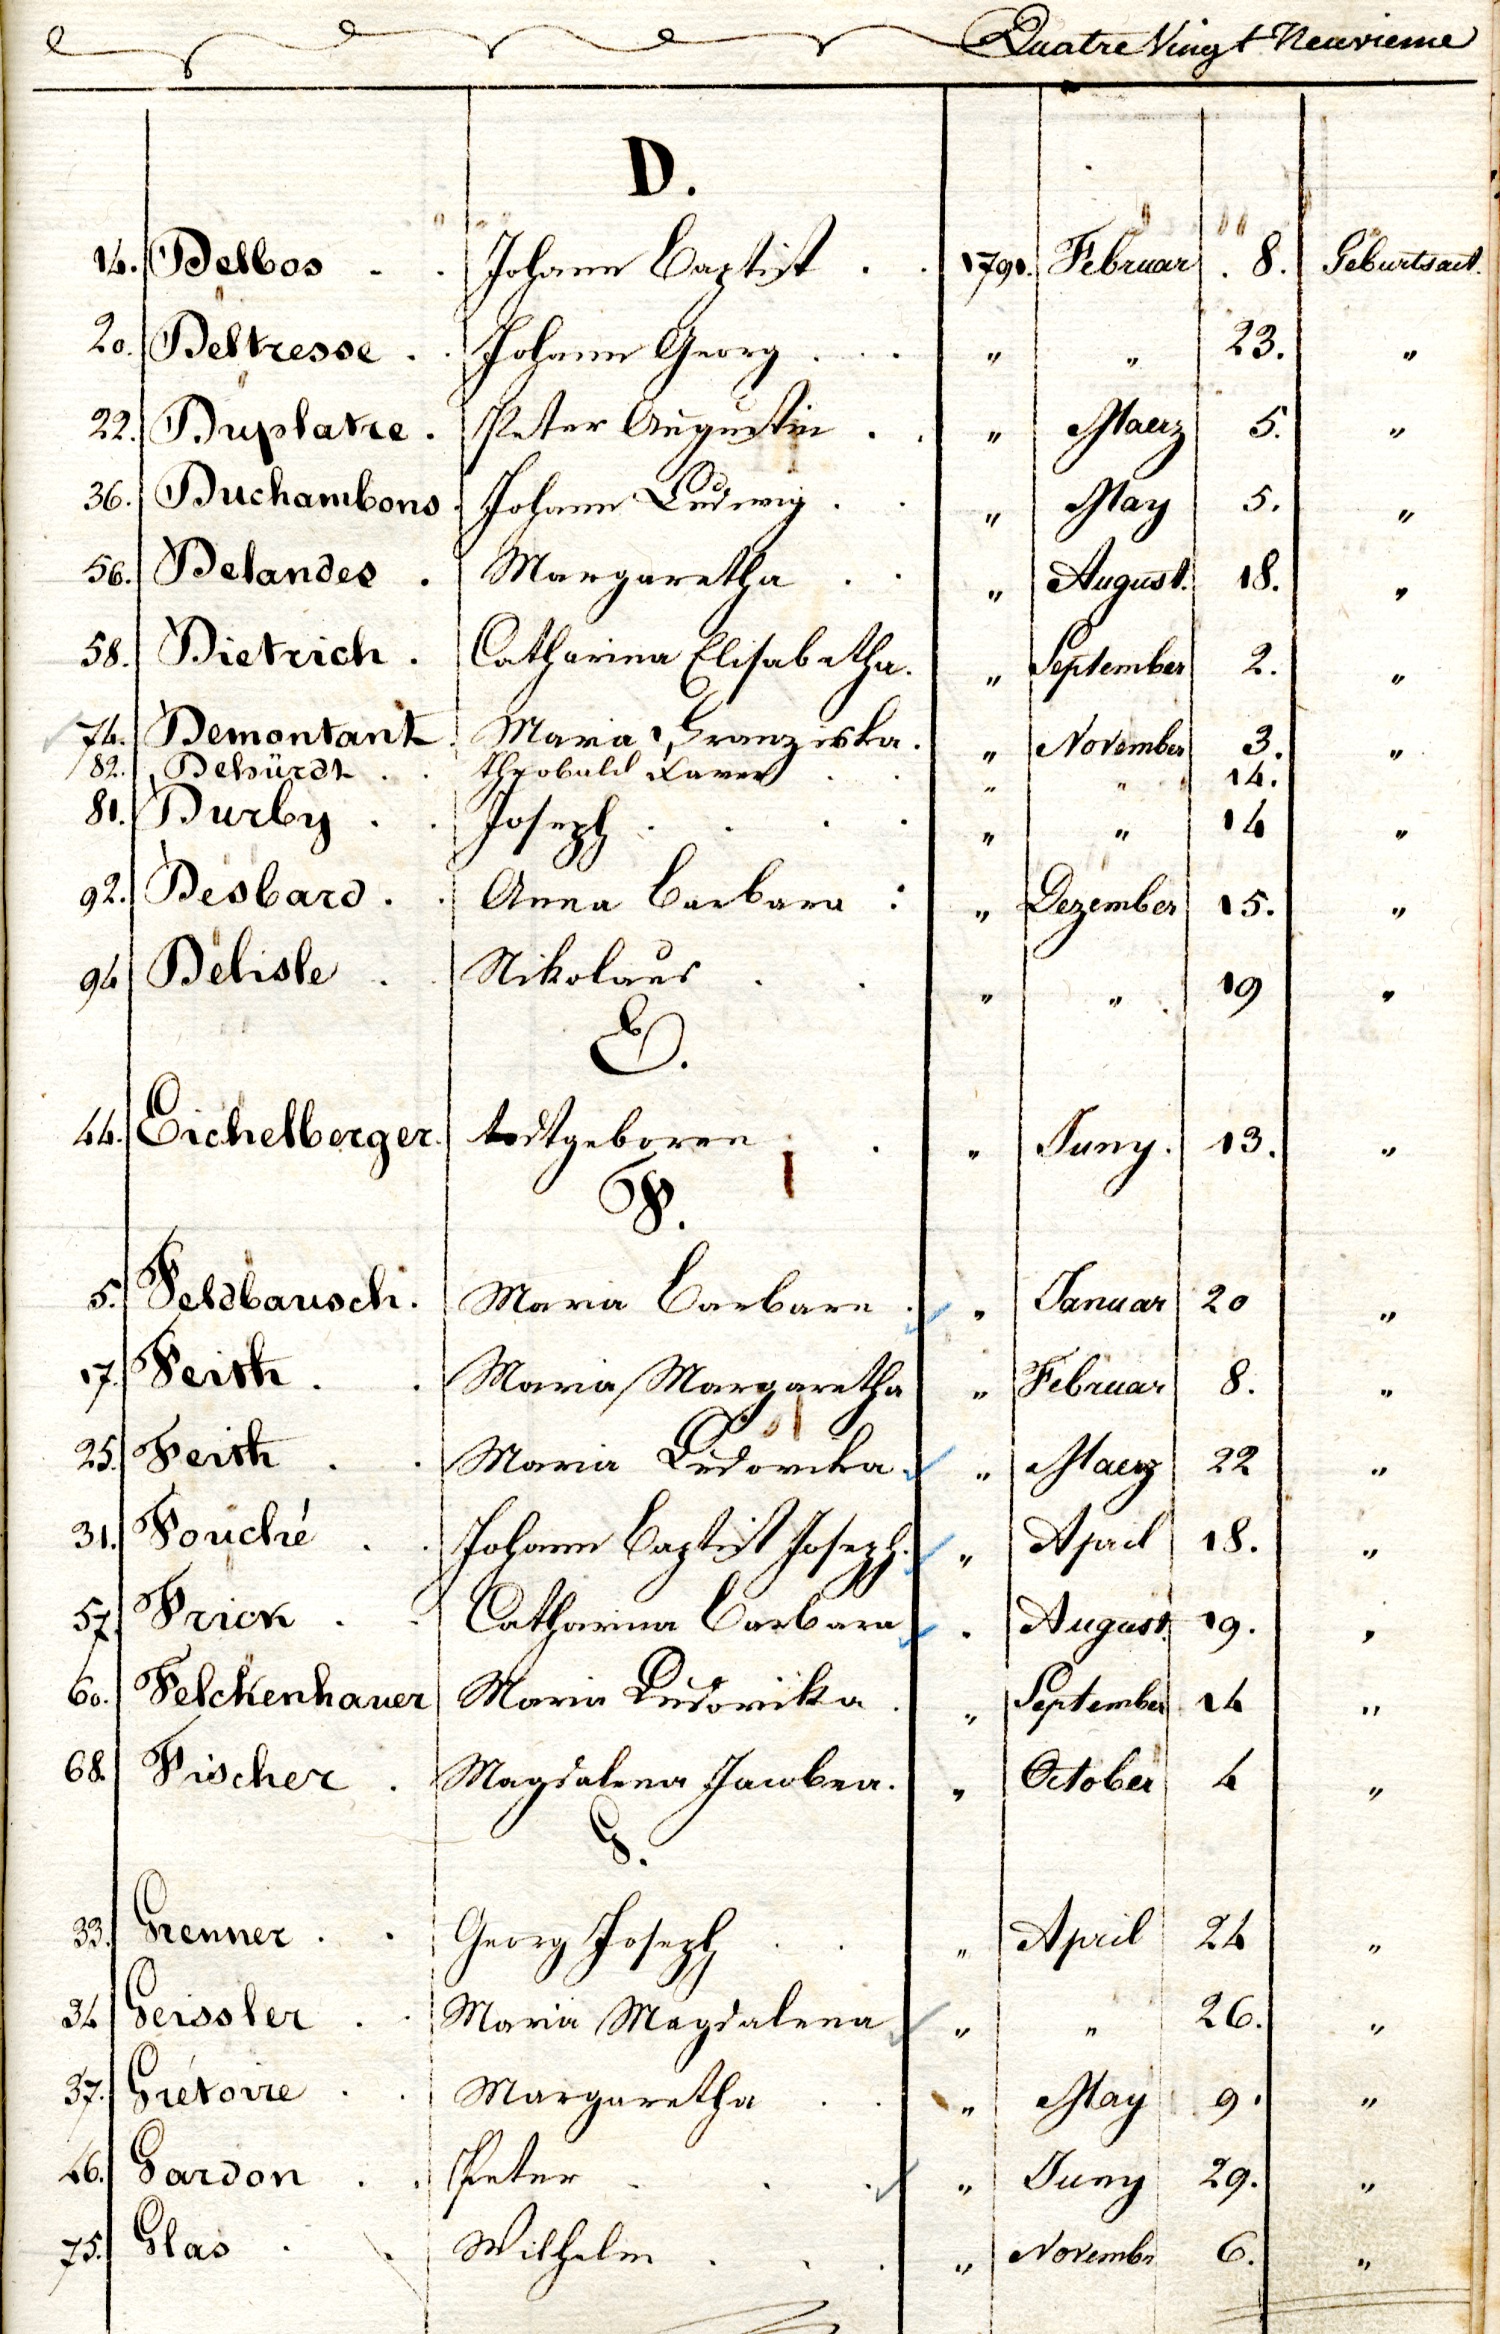 Quatre Vingt Neuvieme
D.
14. Delbos . . Johann Baptist . . 1791. Februar . 8. Geburtsact.
20. Deltresse . . Johann Georg . . . " " 23. "
22. Duplatre . Peter Augustin . . " Maerz 5. "
36. Duchambons . Johann Ludwig . . " May 5. "
56. Delandes . Margaretha . . " August. 18. "
58. Dietrich . Catharina Elisabetha. " September 2. "
74. Demontant . Maria Franziska. " November 3. "
82. Dehürdt . . Theobald Xaver . . " " 14.
81. Durby . . Joseph . . . . " " 14 "
92. Desbard . . Anna Barbara : " Dezember 15. "
94 Delisle . . Nikolaus . . " " 19 "
E.
44. Eichelberger. todtgeboren . . " Juny. 13. "
F.
5. Feldbausch. Maria Barbara . " Januar 20 "
17. Feith . . Maria Margaretha " Februar 8. "
25. Feith . . Maria Ludovika . " Maerz 22 "
31. Fouché . . Johann Baptist Joseph. " April 18. "
57. Frick . . Catharina Barbara " August. 19. "
60. Felckenhauer Maria Ludovika . " September 14 "
68. Fischer . Magdalena Jacobea. " October 4 "
G.
33. Grenner . . Georg Joseph . . " April 24 "
34 Geissler . . Maria Magdalena " " 26. "
37. Grétoire . . Margaretha . . " May 9. "
46. Gardon . . Peter . . . " Juny 29. "
75. Glas . . Wilhelm . . . " Novembr 6. "